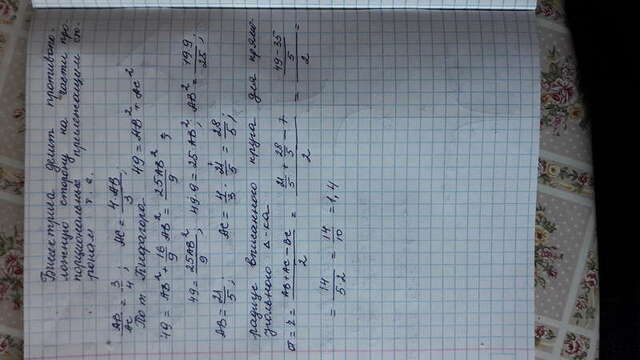 Биссектриса делит противопо-
ложную сторону на части про-
порциональные прилежащим сто-
ронам т. е.
AB/AC = 3/4; AC = 4·AB/3;
По т. Пифагора 49 = AB² + AC²
49 = AB² + 16/9 AB² = 25AB²/9;
49 = 25AB²/9; 49·9 = 25 AB²; AB² = 49·9/25;
AB = 21/5; AC = 4/3 · 21/5 = 28/5;
радиус вписанного круга для прямо-
угольного Δ-ка
= r = (AB + AC - BC)/2 = (21/5 + 28/5 - 7)/2 = ((49 - 35)/5)/2 =
= 14/(5·2) = 14/10 = 1,4